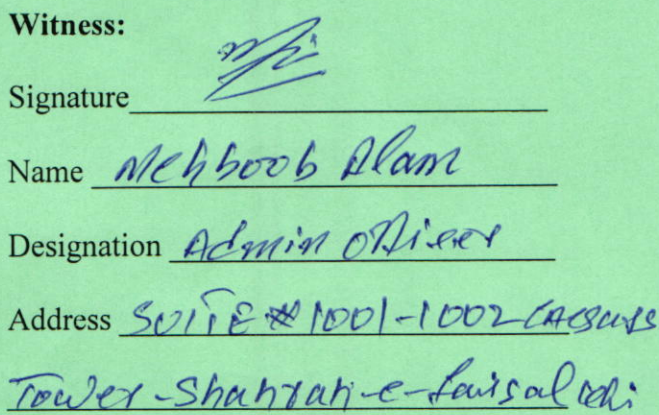 Witness:
Signature
Name Mehboob Alam
Designation Admin Officer
Address SUITE # 1001-1002 CAESARS
Tower-Shahrah-e-Faisal